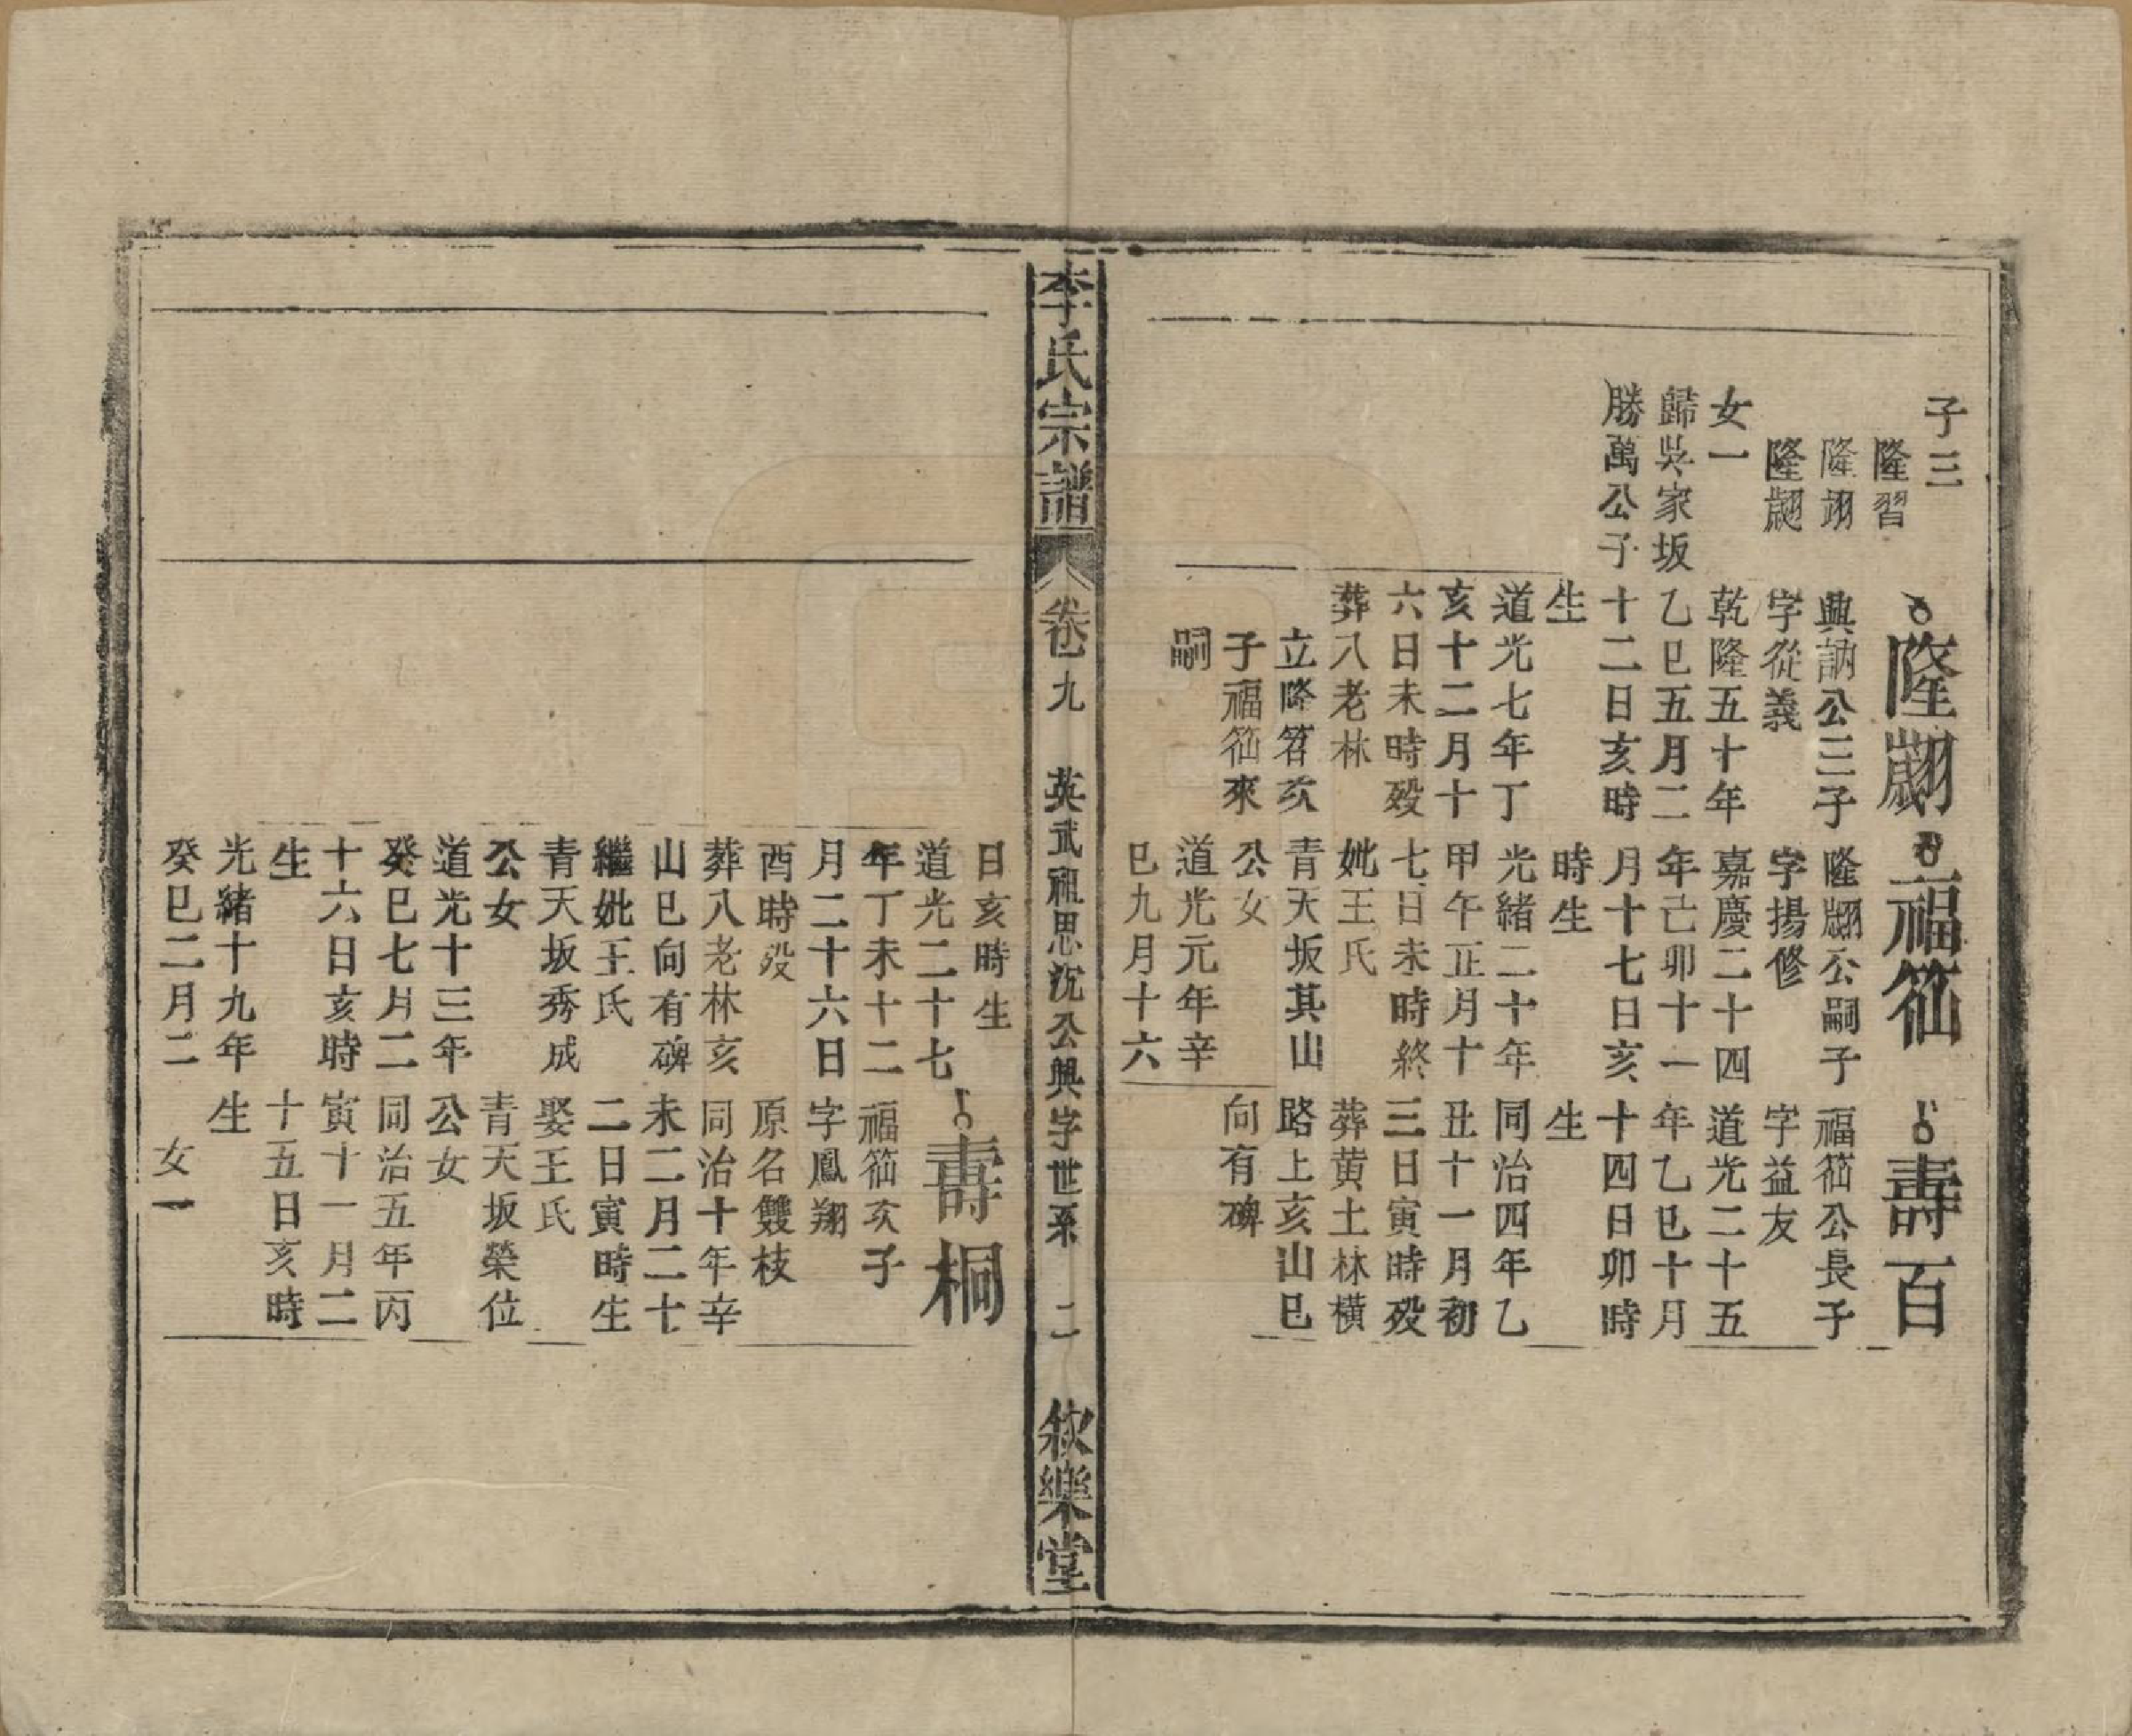 子三
隆習
隆翊
隆翽
女一
歸吳家坂
勝萬公子
隆翽
興訥公三子
字從義
乾隆五十年
乙巳五月二
十二日亥時
生
道光七年丁
亥十二月十
六日未時殁
葬八老林
立隆䇹次
子福䇔來
嗣
福䇔
隆翽公嗣子
字揚修
嘉慶二十四
年己卯十一
月十七日亥
時生
光緒二十年
甲午正月十
七日未時終
妣王氏
青天坂其山
公女
道光元年辛
巳九月十六
壽百
福䇔公長子
字益友
道光二十五
年乙巳十月
十四日卯時
生
同治四年乙
丑十一月初
三日寅時殁
葬黄土林橫
路上亥山巳
向有碑
李氏宗譜
卷九
英武祖思沉公興字世系
二
敘樂堂
日亥時生
道光二十七
年丁未十二
月二十六日
酉時殁
葬八老林亥
山巳向有碑
繼妣王氏
青天坂秀成
公女
道光十三年
癸巳七月二
十六日亥時
生
光緒十九年
癸巳二月二
壽桐
福䇔次子
字鳳翔
原名雙枝
同治十年辛
未二月二十
二日寅時生
娶王氏
青天坂榮位
公女
同治五年丙
寅十一月二
十五日亥時
生
女一